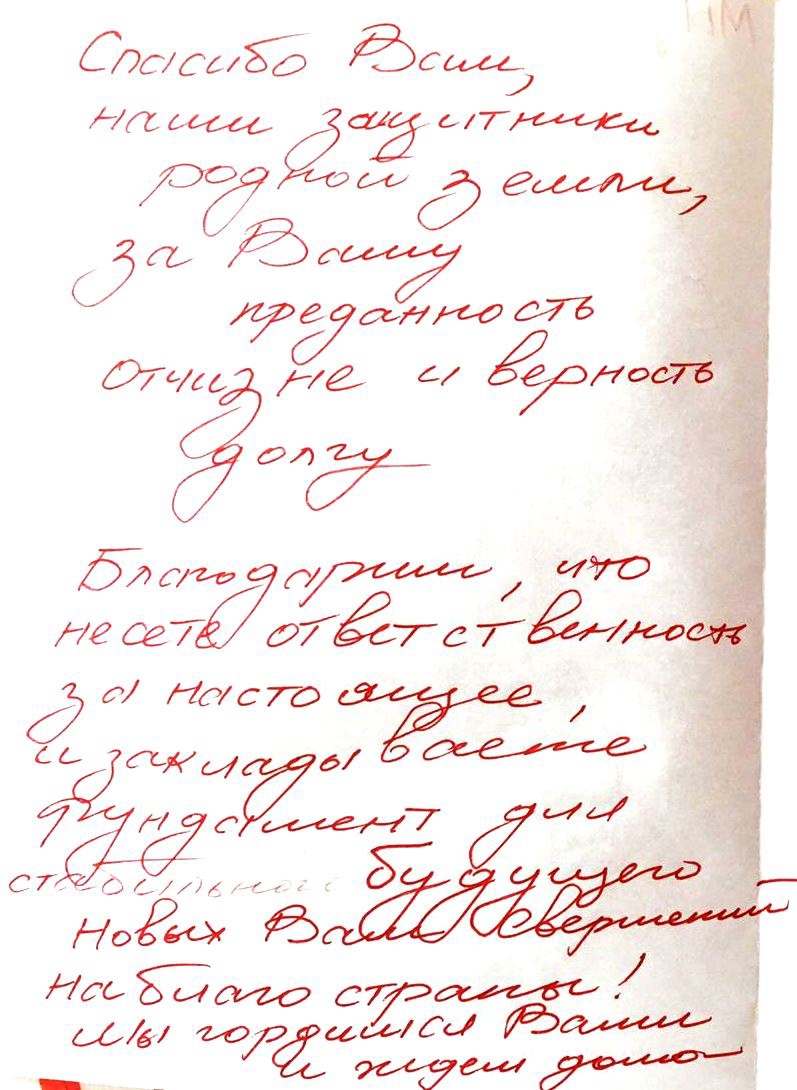 НМ
Спасибо Вам,
наши защитники
родной земли,
за Вашу
преданность
отчизне и верность
долгу
Благодарим, что
несете ответственность
за настоящее,
и закладываете
фундамент для
стабильного будущего
Новых Вам свершений
на благо страны!
Мы гордимся Вами
и ждем дома